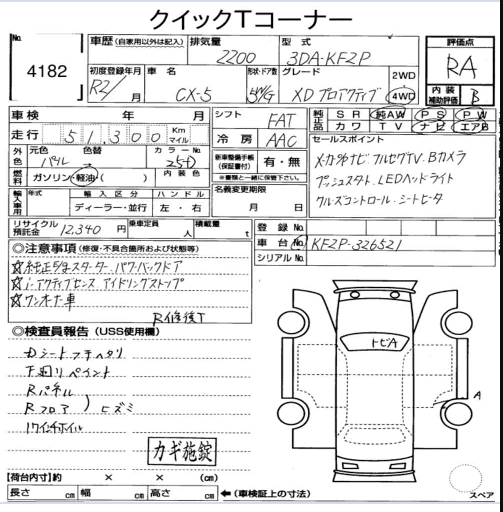 クイックTコーナー
No. 4182
車歴 (自家用以外は記入)
排気量 2200
型式 3DA-KF2P
評価点 RA
初度登録年月 R2/ 月
車名 CX-5
形状・ドア数 5W/G
グレード XD プロアクティブ
2WD
4WD
内装補助評価 B
車検 年 月
シフト FAT
純正品 SR 純AW PS PW
カワ TV ナビ エアB
走行 51,300 Km マイル
冷房 AAC
セールスポイント
メーカーナビ フルセグTV. Bカメラ
プッシュスタート. LEDヘッドライト
クルーズコントロール. シートヒータ
外色 元色 パール 色替 カラーNo. 25D
新車整備手帳 (保証書付) 有・無
※書類と一緒に保管下さい。
燃料 ガソリン・軽油 ( ) 内装色
名義変更期限 月 日
輸入車用 年式 輸入区分 ハンドル
ディーラー・並行 左・右
リサイクル預託金 12,340 円
乗車定員 人
積載量 t
登録No.
車台No. KF2P-326521
シリアルNo.
◎注意事項 (修復・不具合箇所および状態等)
☆純正エンジンスターター パワーバックドア
☆i-アクティブセンス アイドリングストップ
☆ワンオーナー車
R修後T
◎検査員報告 (USS使用欄)
Dシートコゲ ヘタリ
下廻りペイント
Rパネル
Rフロア ) ヒズミ
17インチホイル
カギ施錠
トビA
A
【荷台内寸】約 × × (cm)
長さ cm 幅 cm 高さ cm ←(車検証上の寸法)
スペア